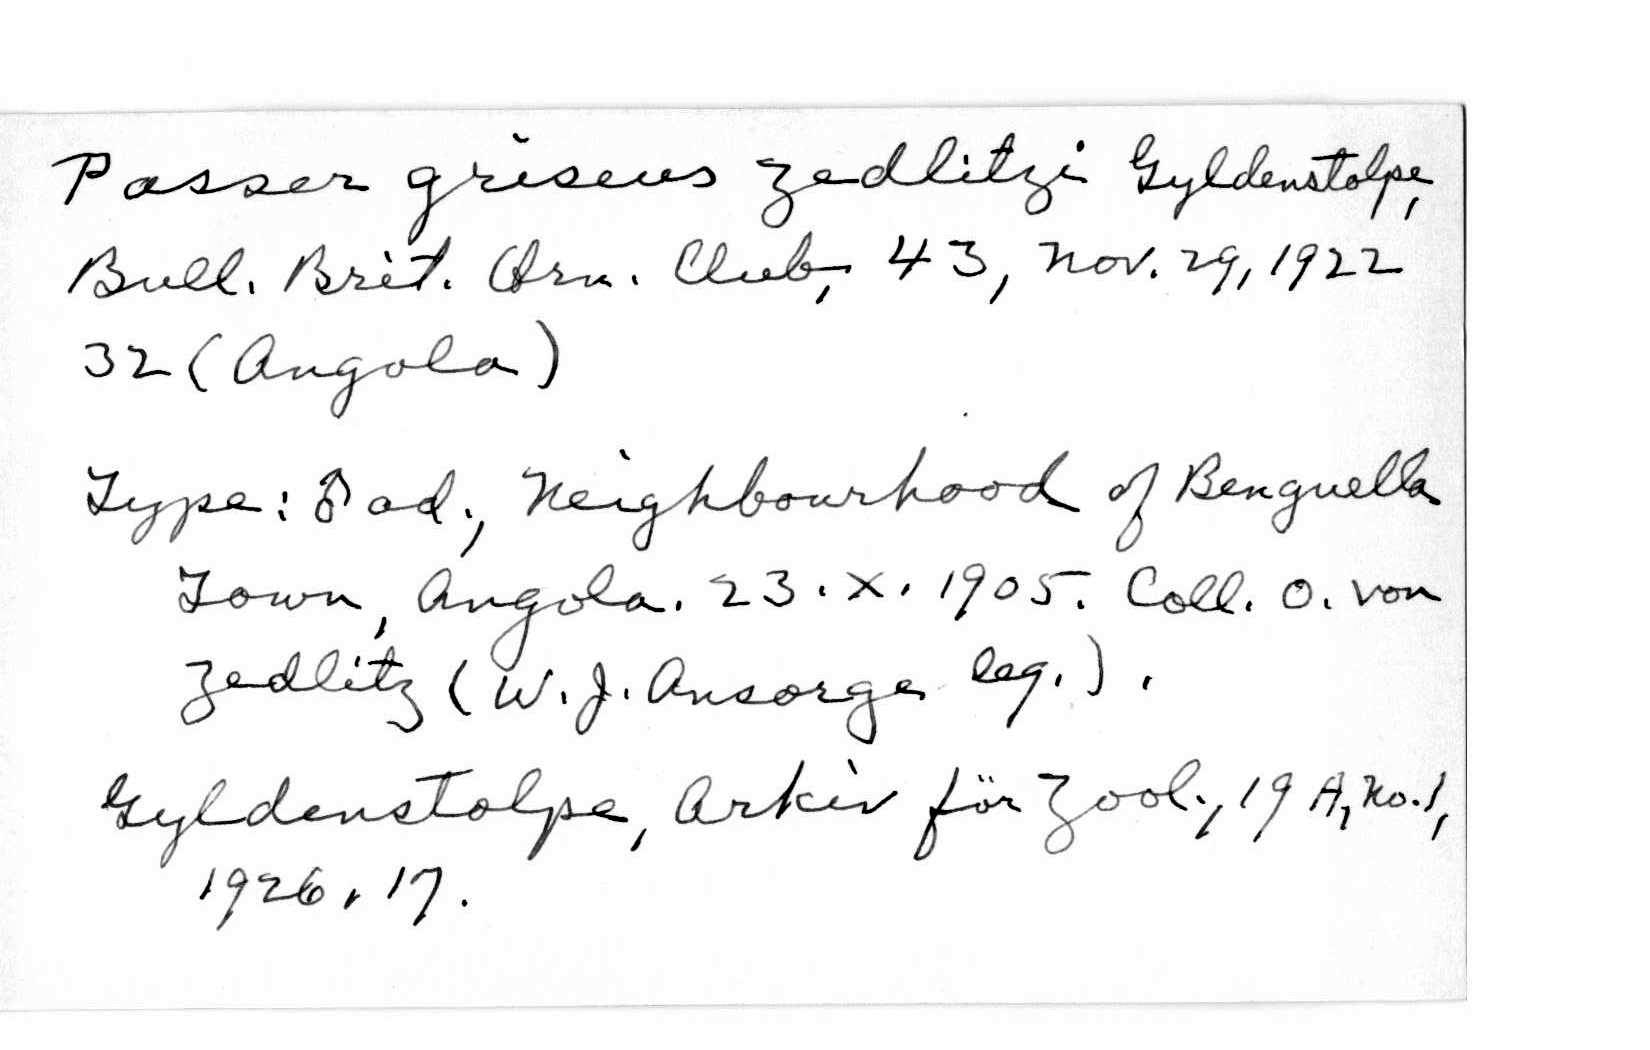 Passer griseus zedlitzi Gyldenstolpe,
Bull. Brit. Orn. Club, 43, Nov. 29, 1922
32 (Angola)
Type: ♂ ad., Neighbourhood of Benguella
Town, Angola. 23. X. 1905. Coll. O. von
Zedlitz (W. J. Ansorge leg.).
Gyldenstolpe, Arkiv för Zool., 19 A, No. 1,
1926, 17.